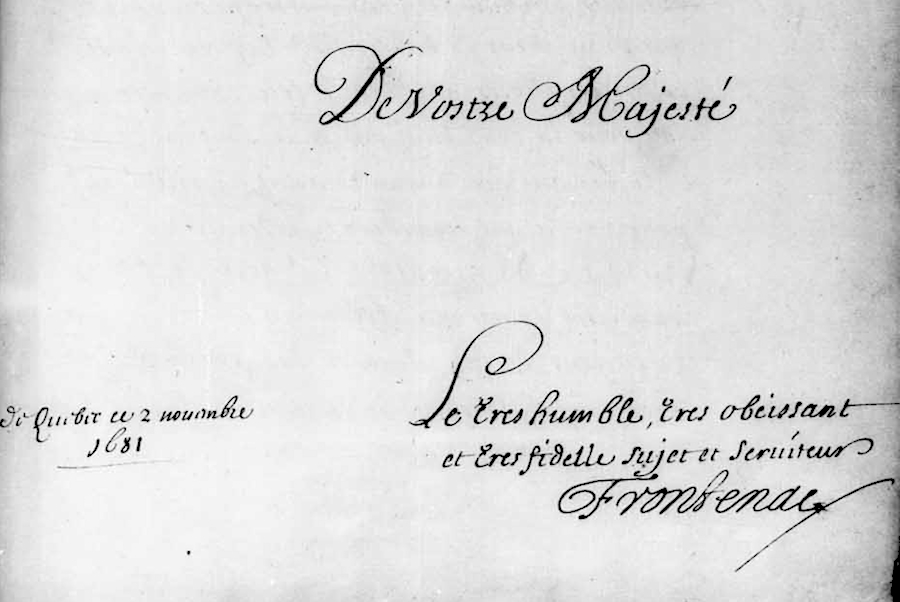 De Vostre Majesté
De Quebec ce 2 novembre
1681
Le tres humble, tres obeissant
et tres fidelle sujet et serviteur
Frontenac